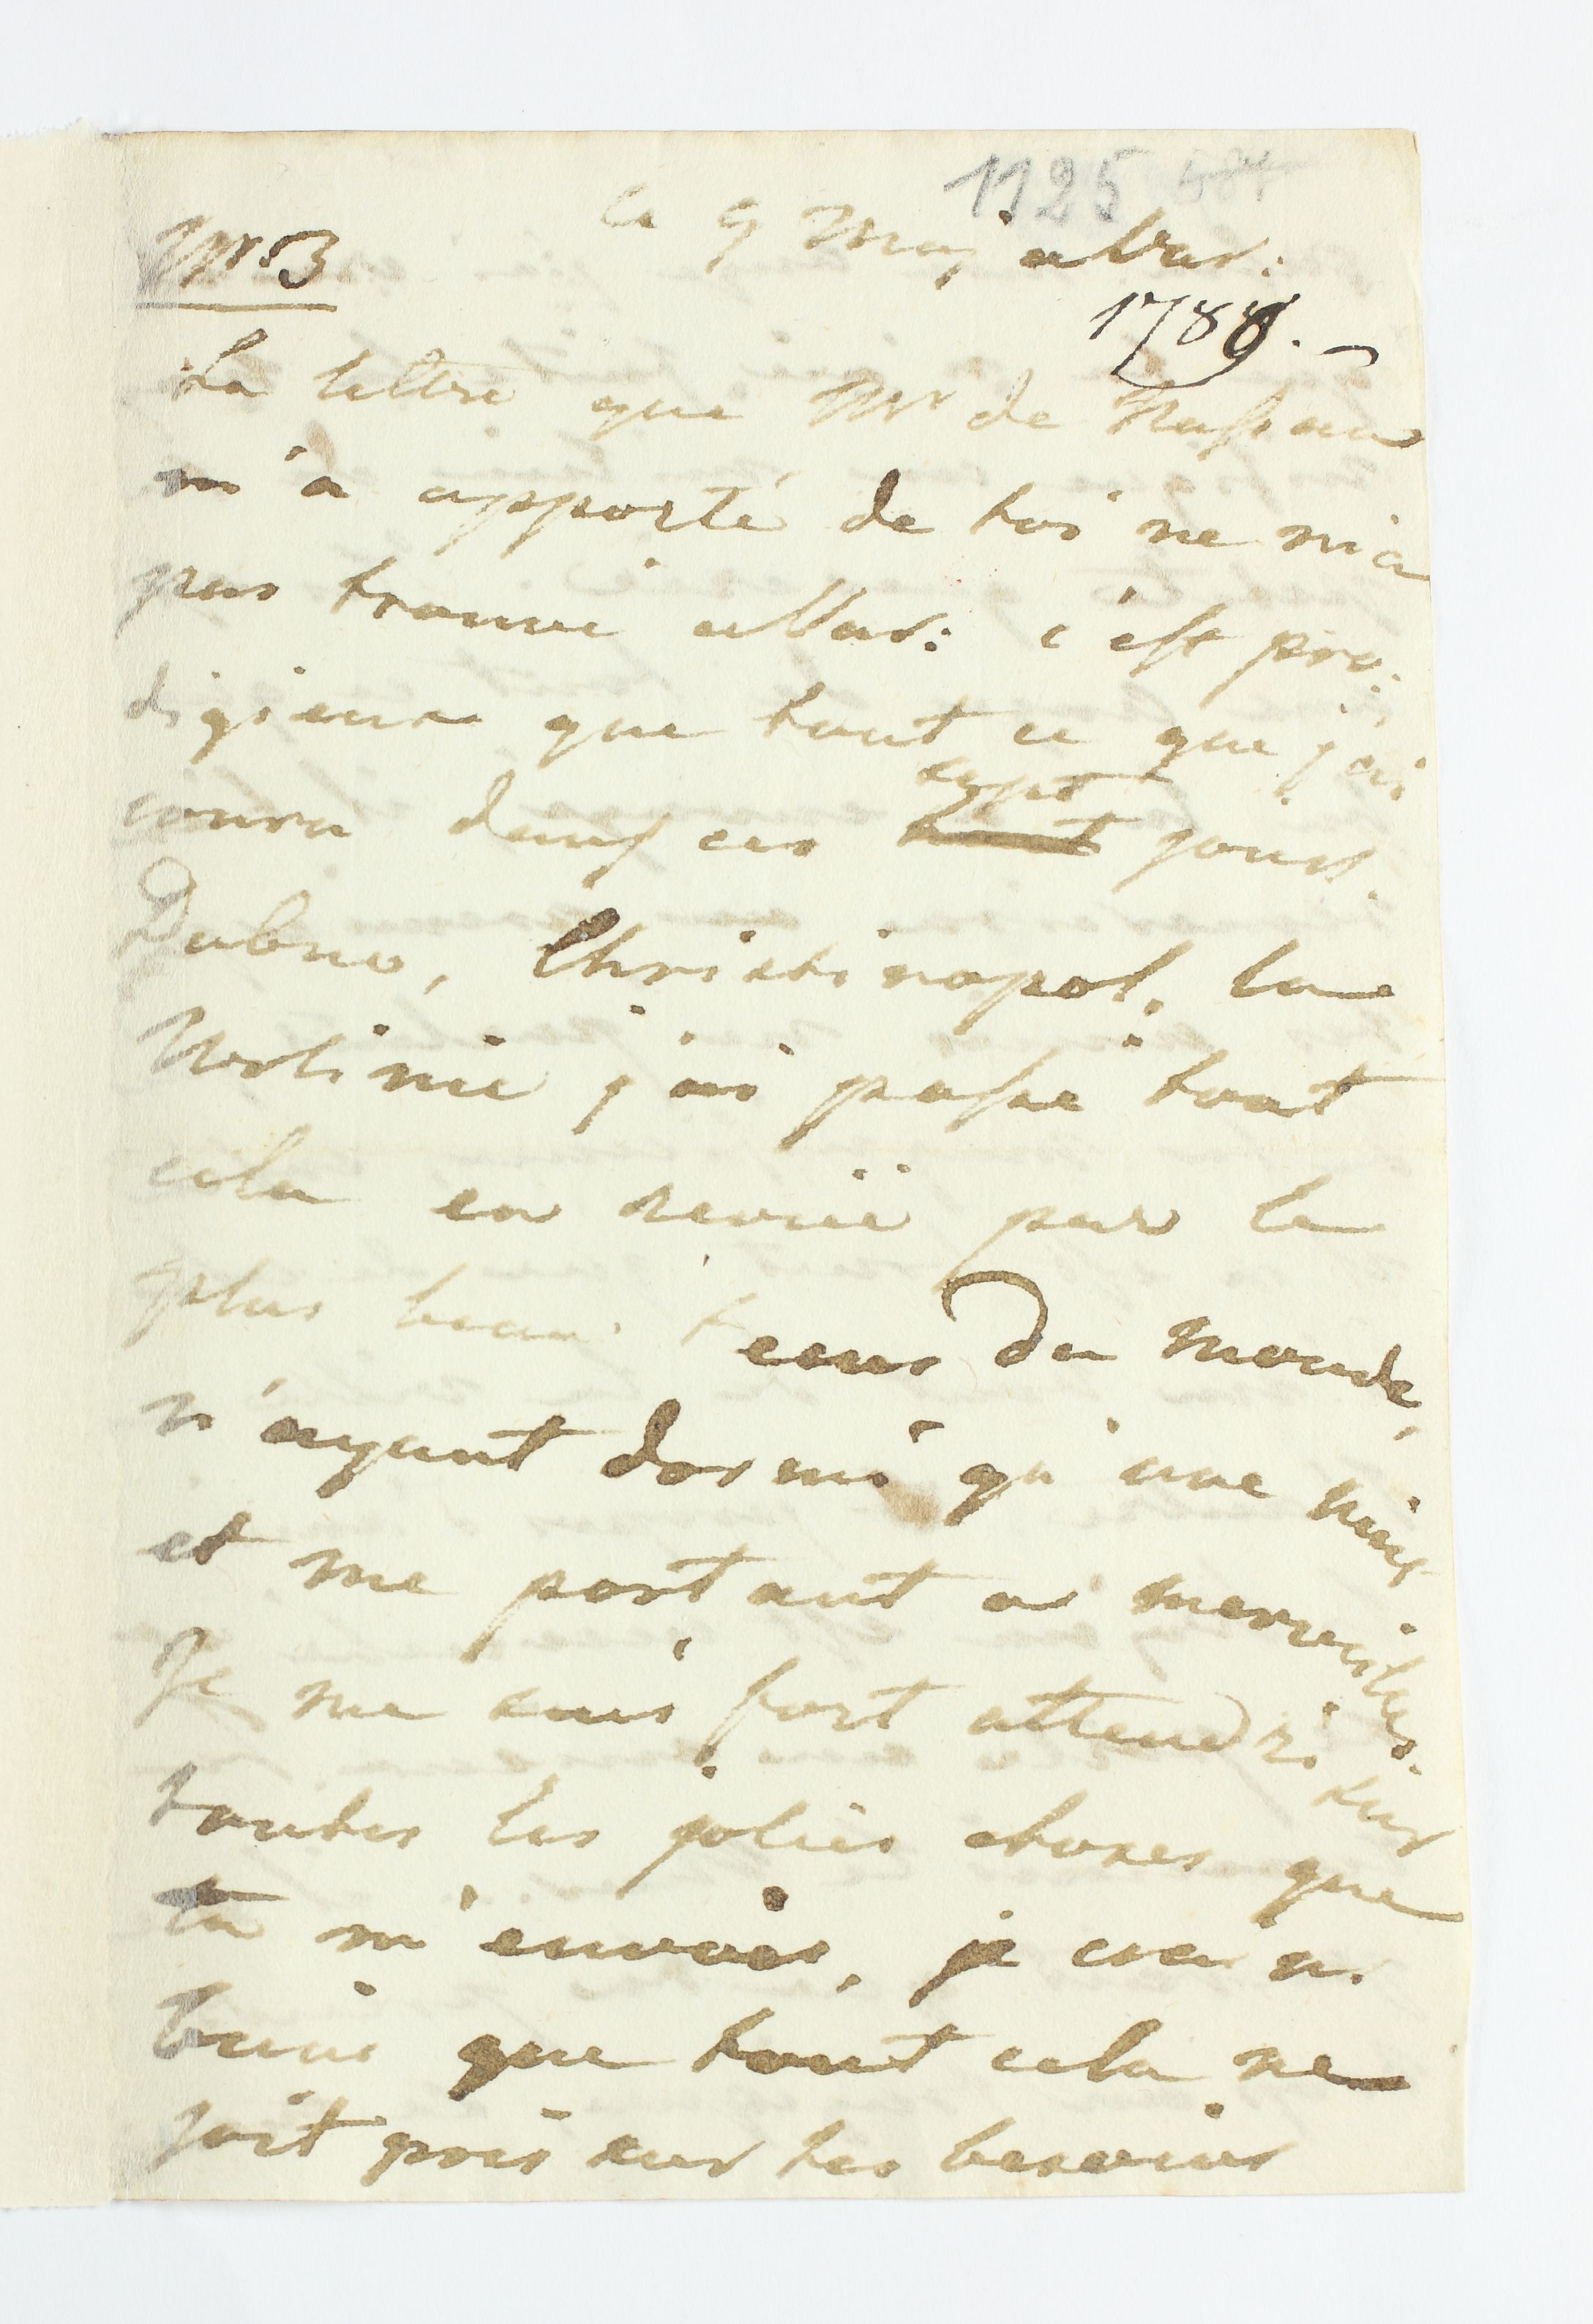 1125
ce 9 May a Var:
Nr. 3
1788. –
La lettre que Mr de Nassau
m'a apporté de toi ne m'a
pas trouvé a Var: c'est pro:
digieux que tout ce que j'ai
couru dans ces sept jours.
Dubno, Christinopol, la
Wolinie j'ai passé tout
cela en revüe par le
plus beau tems du monde,
n'ayant dormi qu'une nuit
et me portant a merveilles.
Je me suis fort attendri sur
toutes les jolies choses que
tu m'envois, je crains
bien que tout cela ne
soit pris sur tes besoins